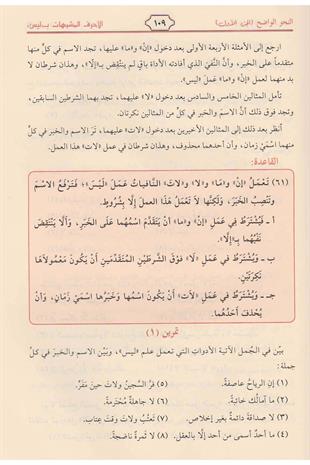 النحو الواضح
١٠٩
الأحرف المشبهات بـ«ليس»
ارجع إلى الأمثلة الأربعة الأولى بعد دخول «إنْ» و«ما» عليها، تجد الاسم في كلٍّ منها
متقدماً على الخبر، وأنَّ النَّفيَ الذي أفادته الأداة باقٍ لم ينتقِض بـ«إلّا»، وهذان شرطان لا
بد منهما في عمل «إنْ» و«ما» عَمَلَ «لَيْسَ».
تأمل المثالين الخامس والسادس بعد دخول «لا» عليهما، تجد بهما الشرطين السابقين،
وتجد فوق ذلك أنَّ الاسمَ والخبرَ في كلٍّ من المثالين نكرتان.
أنظر بعد ذلك إلى المثالين الأخيرين بعد دخول «لات» عليهما، تَرَ الاسم والخبر في كل
منهما اسْمَيْ زمان، وأن أحدهما محذوف، وهذان شرطان في عمل «لات» هذا العمل.
القاعدة:
(٦١) تَعْمَلُ «إنْ» و«مَا» و«لا» و«لاتَ» النَّافياتُ عَمَلَ «لَيْسَ»؛ فَتَرْفَعُ الاسْمَ
وَتَنْصِبُ الخَبَرَ، وَلَكِنَّها لا تَعْمَلُ هَذَا العَمَلَ إلَّا بِشُرُوطٍ.
أ - فَيُشْتَرَطُ في عَمَلِ «إنْ» و«ما» أنْ يَتَقَدَّمَ اسْمُهُما عَلَى الخَبَرِ، وَأَلَّا يَنْتَقِضَ
نَفْيُهُما بِـ«إلّا».
ب - وَيُشْتَرَطُ في عَمَلِ «لَا» فَوْقَ الشَّرطَيْنِ المُتَقَدِّمَيْنِ أَنْ يَكُونَ مَعْمُولاهَا
نَكِرَتَيْنِ.
جـ - وَيُشْتَرَطُ في عَمَلِ «لاَتَ» أَنْ يَكُونَ اسْمُها وَخَبَرُها اسْمَيْ زَمَانٍ، وَأَنْ
يُحْذَفَ أَحَدُهُما.
تمرين (١)
بيِّن في الجُملِ الآتية الأدواتِ التي تعمل عمل «ليس»، وبَيِّن الاسم والخبر في كلِّ
جملة:
(١) إن الرياحُ عاصفةً. (٥) فرَّ السجينُ ولاتَ حينَ مَفَرّ.
(٢) ما آمالُك خائبةً. (٦) لا جاهلةٌ مُحترمةً.
(٣) لا صداقةٌ دائمةً بغير إخلاص. (٧) تَعتُبُ ولاتَ وقتَ عِتاب.
(٤) ما أحدٌ أسمى من أحد إلّا بالعقل. (٨) لا ثمرةٌ ناضجةً.